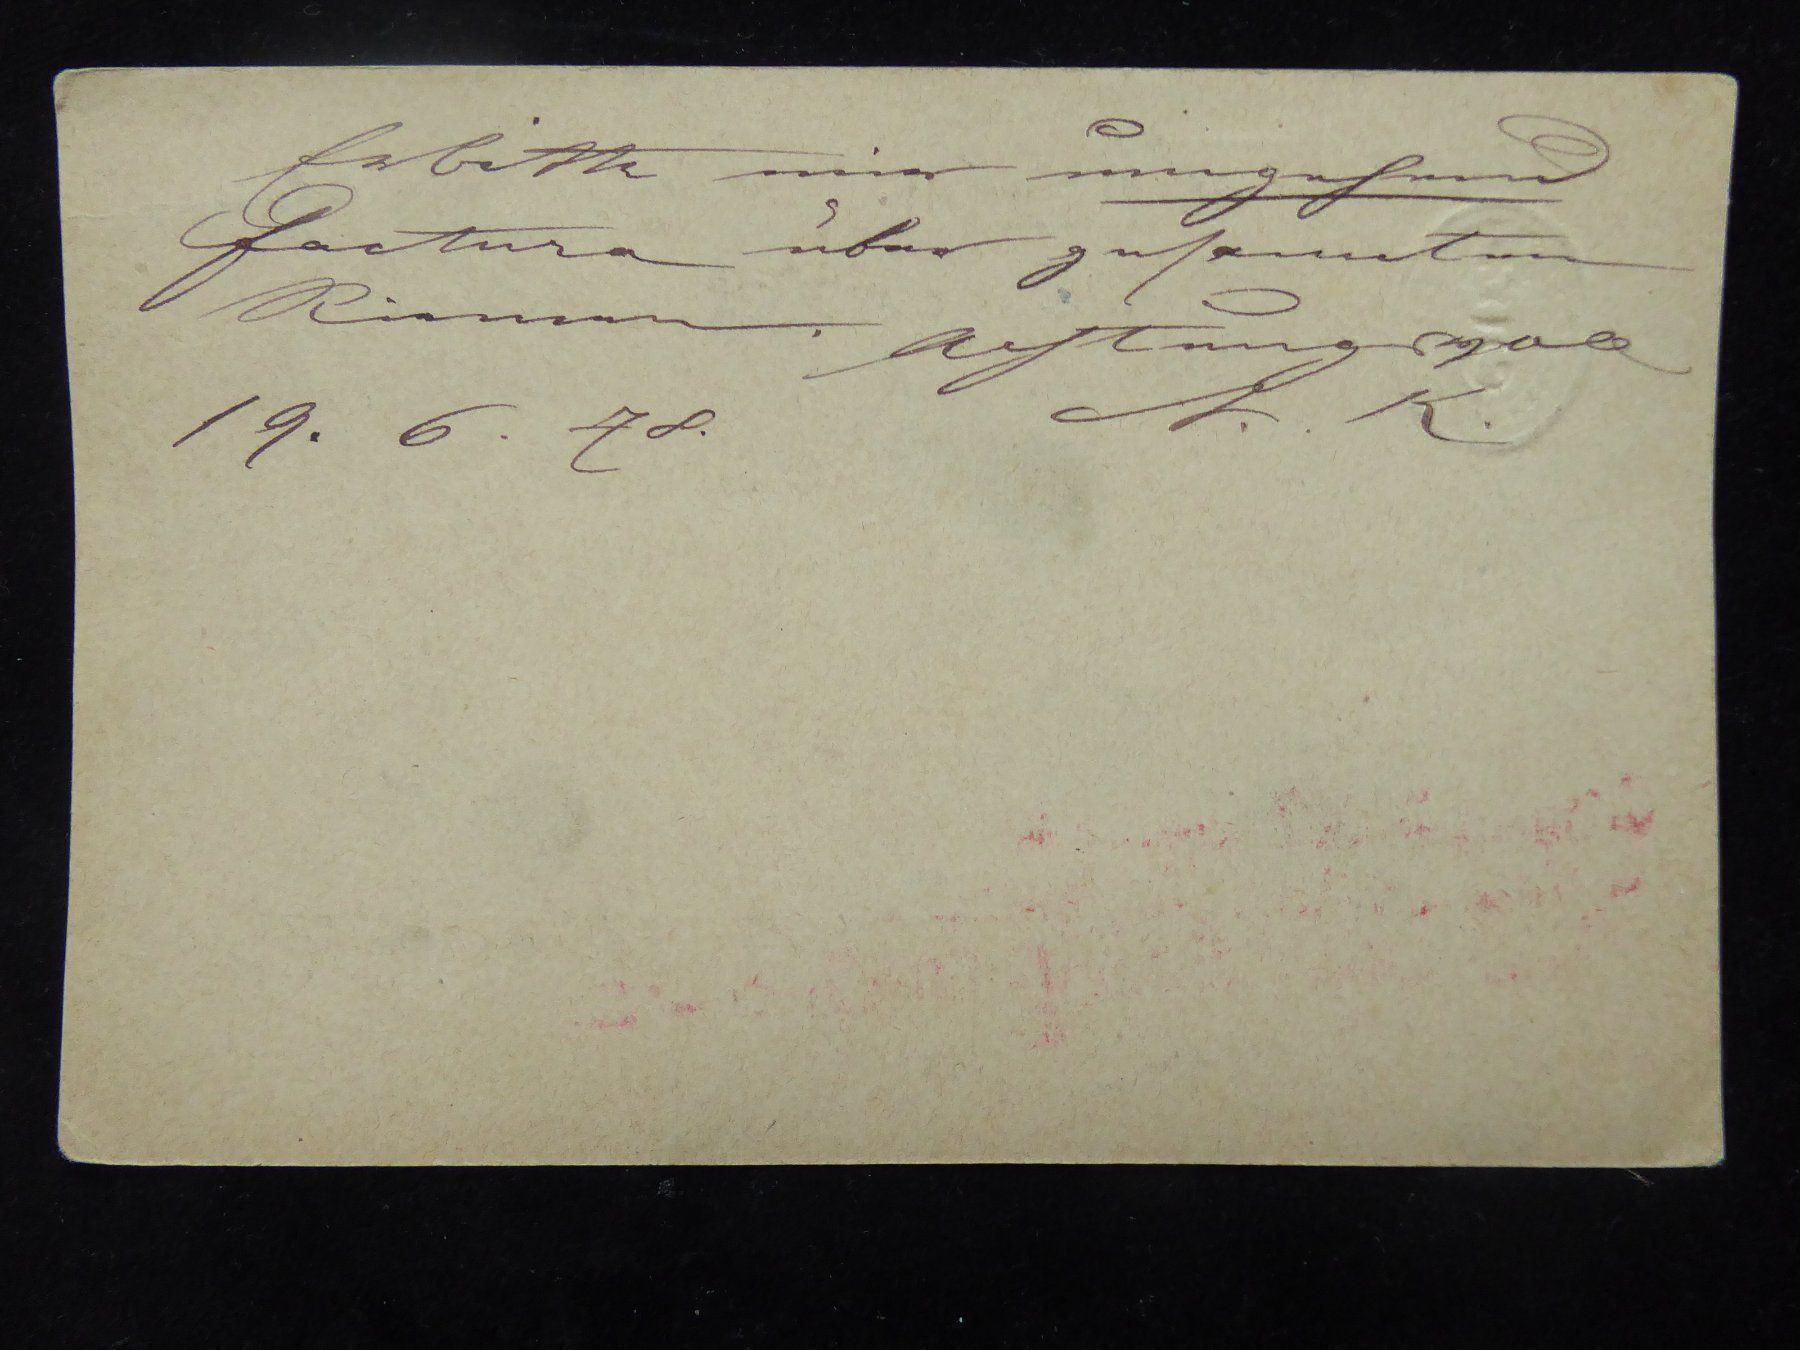 Erbitte mir umgehend
Factura über gesammten
Riemen. Achtungsvoll
19. 6. 78. A. K.